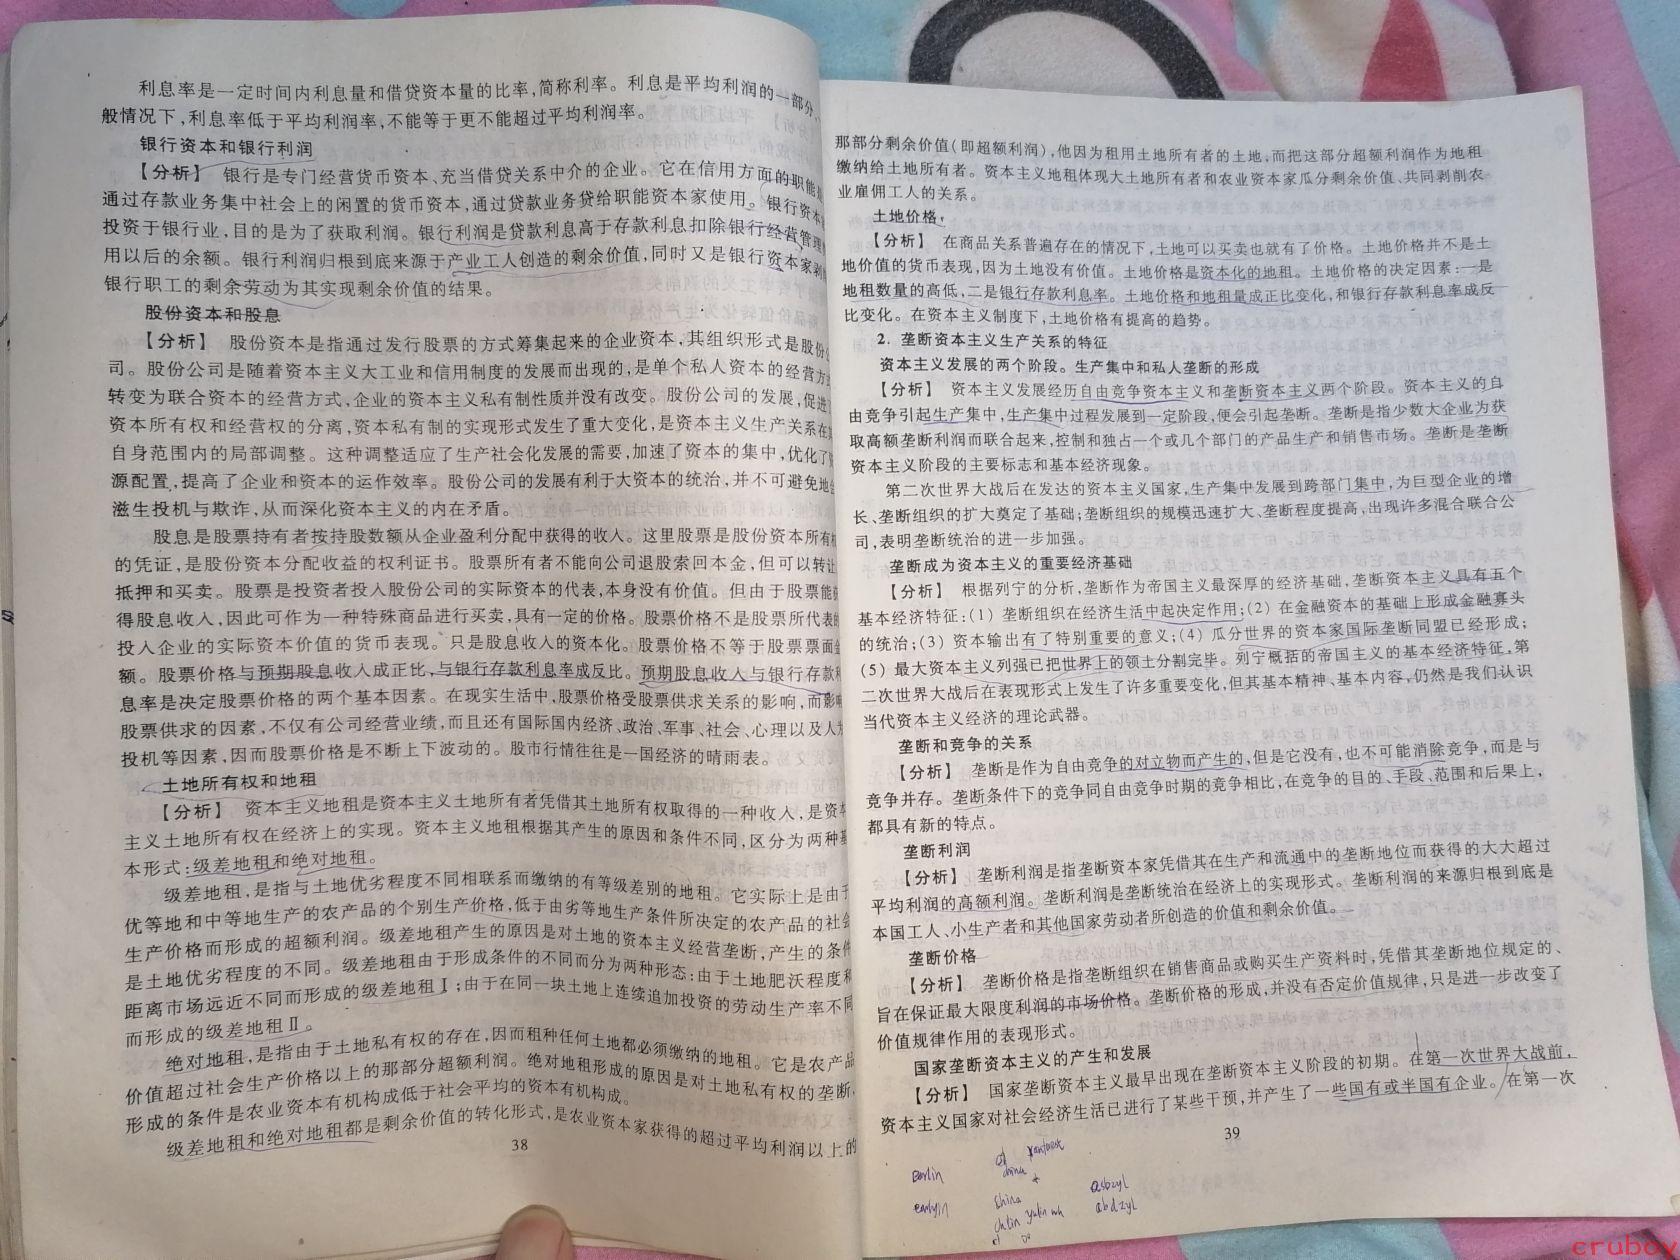 利息率是一定时间内利息量和借贷资本量的比率,简称利率。利息是平均利润的一部分,
般情况下,利息率低于平均利润率,不能等于更不能超过平均利润率。
银行资本和银行利润
【分析】 银行是专门经营货币资本、充当借贷关系中介的企业。它在信用方面的职能是
通过存款业务集中社会上的闲置的货币资本,通过贷款业务贷给职能资本家使用。银行资本
投资于银行业,目的是为了获取利润。银行利润是贷款利息高于存款利息扣除银行经营管理
用以后的余额。银行利润归根到底来源于产业工人创造的剩余价值,同时又是银行资本家剥
银行职工的剩余劳动为其实现剩余价值的结果。
股份资本和股息
【分析】 股份资本是指通过发行股票的方式筹集起来的企业资本,其组织形式是股份公
司。股份公司是随着资本主义大工业和信用制度的发展而出现的,是单个私人资本的经营方
转变为联合资本的经营方式,企业的资本主义私有制性质并没有改变。股份公司的发展,促进
资本所有权和经营权的分离,资本私有制的实现形式发生了重大变化,是资本主义生产关系在
自身范围内的局部调整。这种调整适应了生产社会化发展的需要,加速了资本的集中,优化了
源配置,提高了企业和资本的运作效率。股份公司的发展有利于大资本的统治,并不可避免地
滋生投机与欺诈,从而深化资本主义的内在矛盾。
股息是股票持有者按持股数额从企业盈利分配中获得的收入。这里股票是股份资本所有权
的凭证,是股份资本分配收益的权利证书。股票所有者不能向公司退股索回本金,但可以转让
抵押和买卖。股票是投资者投入股份公司的实际资本的代表,本身没有价值。但由于股票能
得股息收入,因此可作为一种特殊商品进行买卖,具有一定的价格。股票价格不是股票所代表
投入企业的实际资本价值的货币表现。只是股息收入的资本化。股票价格不等于股票票面金
额。股票价格与预期股息收入成正比,与银行存款利息率成反比。预期股息收入与银行存款利
息率是决定股票价格的两个基本因素。在现实生活中,股票价格受股票供求关系的影响,而影响
股票供求的因素,不仅有公司经营业绩,而且还有国际国内经济、政治、军事、社会、心理以及人为
投机等因素,因而股票价格是不断上下波动的。股市行情往往是一国经济的晴雨表。
土地所有权和地租
【分析】 资本主义地租是资本主义土地所有者凭借其土地所有权取得的一种收入,是资本
主义土地所有权在经济上的实现。资本主义地租根据其产生的原因和条件不同,区分为两种基
本形式:级差地租和绝对地租。
级差地租,是指与土地优劣程度不同相联系而缴纳的有等级差别的地租。它实际上是由于
优等地和中等地生产的农产品的个别生产价格,低于由劣等地生产条件所决定的农产品的社会
生产价格而形成的超额利润。级差地租产生的原因是对土地的资本主义经营垄断,产生的条件
是土地优劣程度的不同。级差地租由于形成条件的不同而分为两种形态:由于土地肥沃程度和
距离市场远近不同而形成的级差地租Ⅰ;由于在同一块土地上连续追加投资的劳动生产率不同
而形成的级差地租Ⅱ。
绝对地租,是指由于土地私有权的存在,因而租种任何土地都必须缴纳的地租。它是农产品
价值超过社会生产价格以上的那部分超额利润。绝对地租形成的原因是对土地私有权的垄断,
形成的条件是农业资本有机构成低于社会平均的资本有机构成。
级差地租和绝对地租都是剩余价值的转化形式,是农业资本家获得的超过平均利润以上的
38
那部分剩余价值(即超额利润),他因为租用土地所有者的土地,而把这部分超额利润作为地租
缴纳给土地所有者。资本主义地租体现大土地所有者和农业资本家瓜分剩余价值、共同剥削农
业雇佣工人的关系。
土地价格
【分析】 在商品关系普遍存在的情况下,土地可以买卖也就有了价格。土地价格并不是土
地价值的货币表现,因为土地没有价值。土地价格是资本化的地租。土地价格的决定因素:一是
地租数量的高低,二是银行存款利息率。土地价格和地租量成正比变化,和银行存款利息率成反
比变化。在资本主义制度下,土地价格有提高的趋势。
2. 垄断资本主义生产关系的特征
资本主义发展的两个阶段。生产集中和私人垄断的形成
【分析】 资本主义发展经历自由竞争资本主义和垄断资本主义两个阶段。资本主义的自
由竞争引起生产集中,生产集中过程发展到一定阶段,便会引起垄断。垄断是指少数大企业为获
取高额垄断利润而联合起来,控制和独占一个或几个部门的产品生产和销售市场。垄断是垄断
资本主义阶段的主要标志和基本经济现象。
第二次世界大战后在发达的资本主义国家,生产集中发展到跨部门集中,为巨型企业的增
长、垄断组织的扩大奠定了基础;垄断组织的规模迅速扩大、垄断程度提高,出现许多混合联合公
司,表明垄断统治的进一步加强。
垄断成为资本主义的重要经济基础
【分析】 根据列宁的分析,垄断作为帝国主义最深厚的经济基础,垄断资本主义具有五个
基本经济特征:(1) 垄断组织在经济生活中起决定作用;(2) 在金融资本的基础上形成金融寡头
的统治;(3) 资本输出有了特别重要的意义;(4) 瓜分世界的资本家国际垄断同盟已经形成;
(5) 最大资本主义列强已把世界上的领土分割完毕。列宁概括的帝国主义的基本经济特征,第
二次世界大战后在表现形式上发生了许多重要变化,但其基本精神、基本内容,仍然是我们认识
当代资本主义经济的理论武器。
垄断和竞争的关系
【分析】 垄断是作为自由竞争的对立物而产生的,但是它没有,也不可能消除竞争,而是与
竞争并存。垄断条件下的竞争同自由竞争时期的竞争相比,在竞争的目的、手段、范围和后果上,
都具有新的特点。
垄断利润
【分析】 垄断利润是指垄断资本家凭借其在生产和流通中的垄断地位而获得的大大超过
平均利润的高额利润。垄断利润是垄断统治在经济上的实现形式。垄断利润的来源归根到底是
本国工人、小生产者和其他国家劳动者所创造的价值和剩余价值。
垄断价格
【分析】 垄断价格是指垄断组织在销售商品或购买生产资料时,凭借其垄断地位规定的、
旨在保证最大限度利润的市场价格。垄断价格的形成,并没有否定价值规律,只是进一步改变了
价值规律作用的表现形式。
国家垄断资本主义的产生和发展
【分析】 国家垄断资本主义最早出现在垄断资本主义阶段的初期。在第一次世界大战前,
资本主义国家对社会经济生活已进行了某些干预,并产生了一些国有或半国有企业。在第一次
39
Berlin
china
shina
asbzyl
abdzyl
cruboy